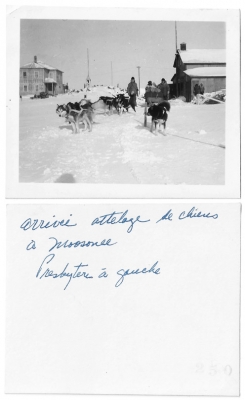 arrivée attelage de chiens
à Moosonee
Presbytère à gauche